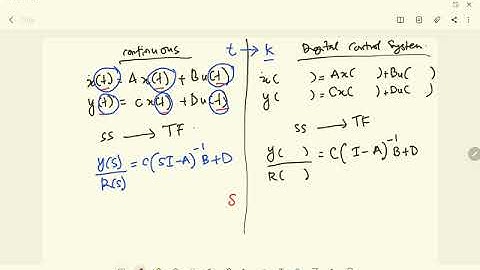 continuous
ẋ(t) = Ax(t) + Bu(t)
y(t) = Cx(t) + Du(t)
SS → TF
Y(S)/R(S) = C(SI-A)⁻¹B+D
S
t → k
Digital Control System
ẋ( ) = Ax( ) + Bu( )
y( ) = Cx( ) + Du( )
SS → TF
Y( )/R( ) = C( I-A)⁻¹B+D